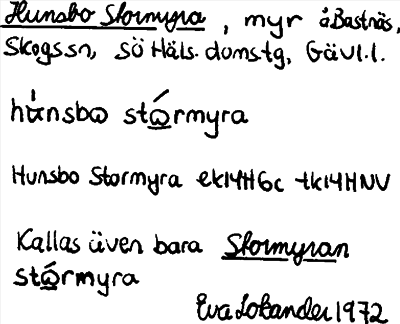 Hunsbo Stormyra, myr å Bastnäs,
Skogs sn, Sö Häls. doms.tg, Gävl.l.
stɷ́rmyra
Hunsbo Stormyra ek14H6c tk14HNV
Kallas även bara Stormyran
stɷ́rmyra
Eva Lokander 1972